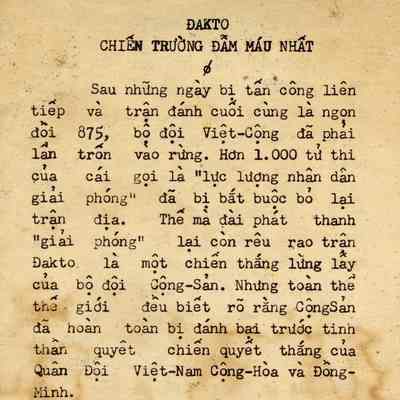 ĐAKTO
CHIẾN TRƯỜNG ĐẪM MÁU NHẤT
Sau những ngày bị tấn công liên
tiếp và trận đánh cuối cùng là ngọn
đồi 875, bộ đội Việt-Cộng đã phải
lẩn trốn vào rừng. Hơn 1.000 tử thi
của cái gọi là "lực lượng nhân dân
giải phóng" đã bị bắt buộc bỏ lại
trận địa. Thế mà đài phát thanh
"giải phóng" lại còn rêu rao trận
Đakto là một chiến thắng lừng lẫy
của bộ đội Cộng-Sản. Nhưng toàn thể
thế giới đều biết rõ rằng CộngSản
đã hoàn toàn bị đánh bại trước tinh
thần quyết chiến quyết thắng của
Quân Đội Việt-Nam Cộng-Hòa và Đồng-
Minh.